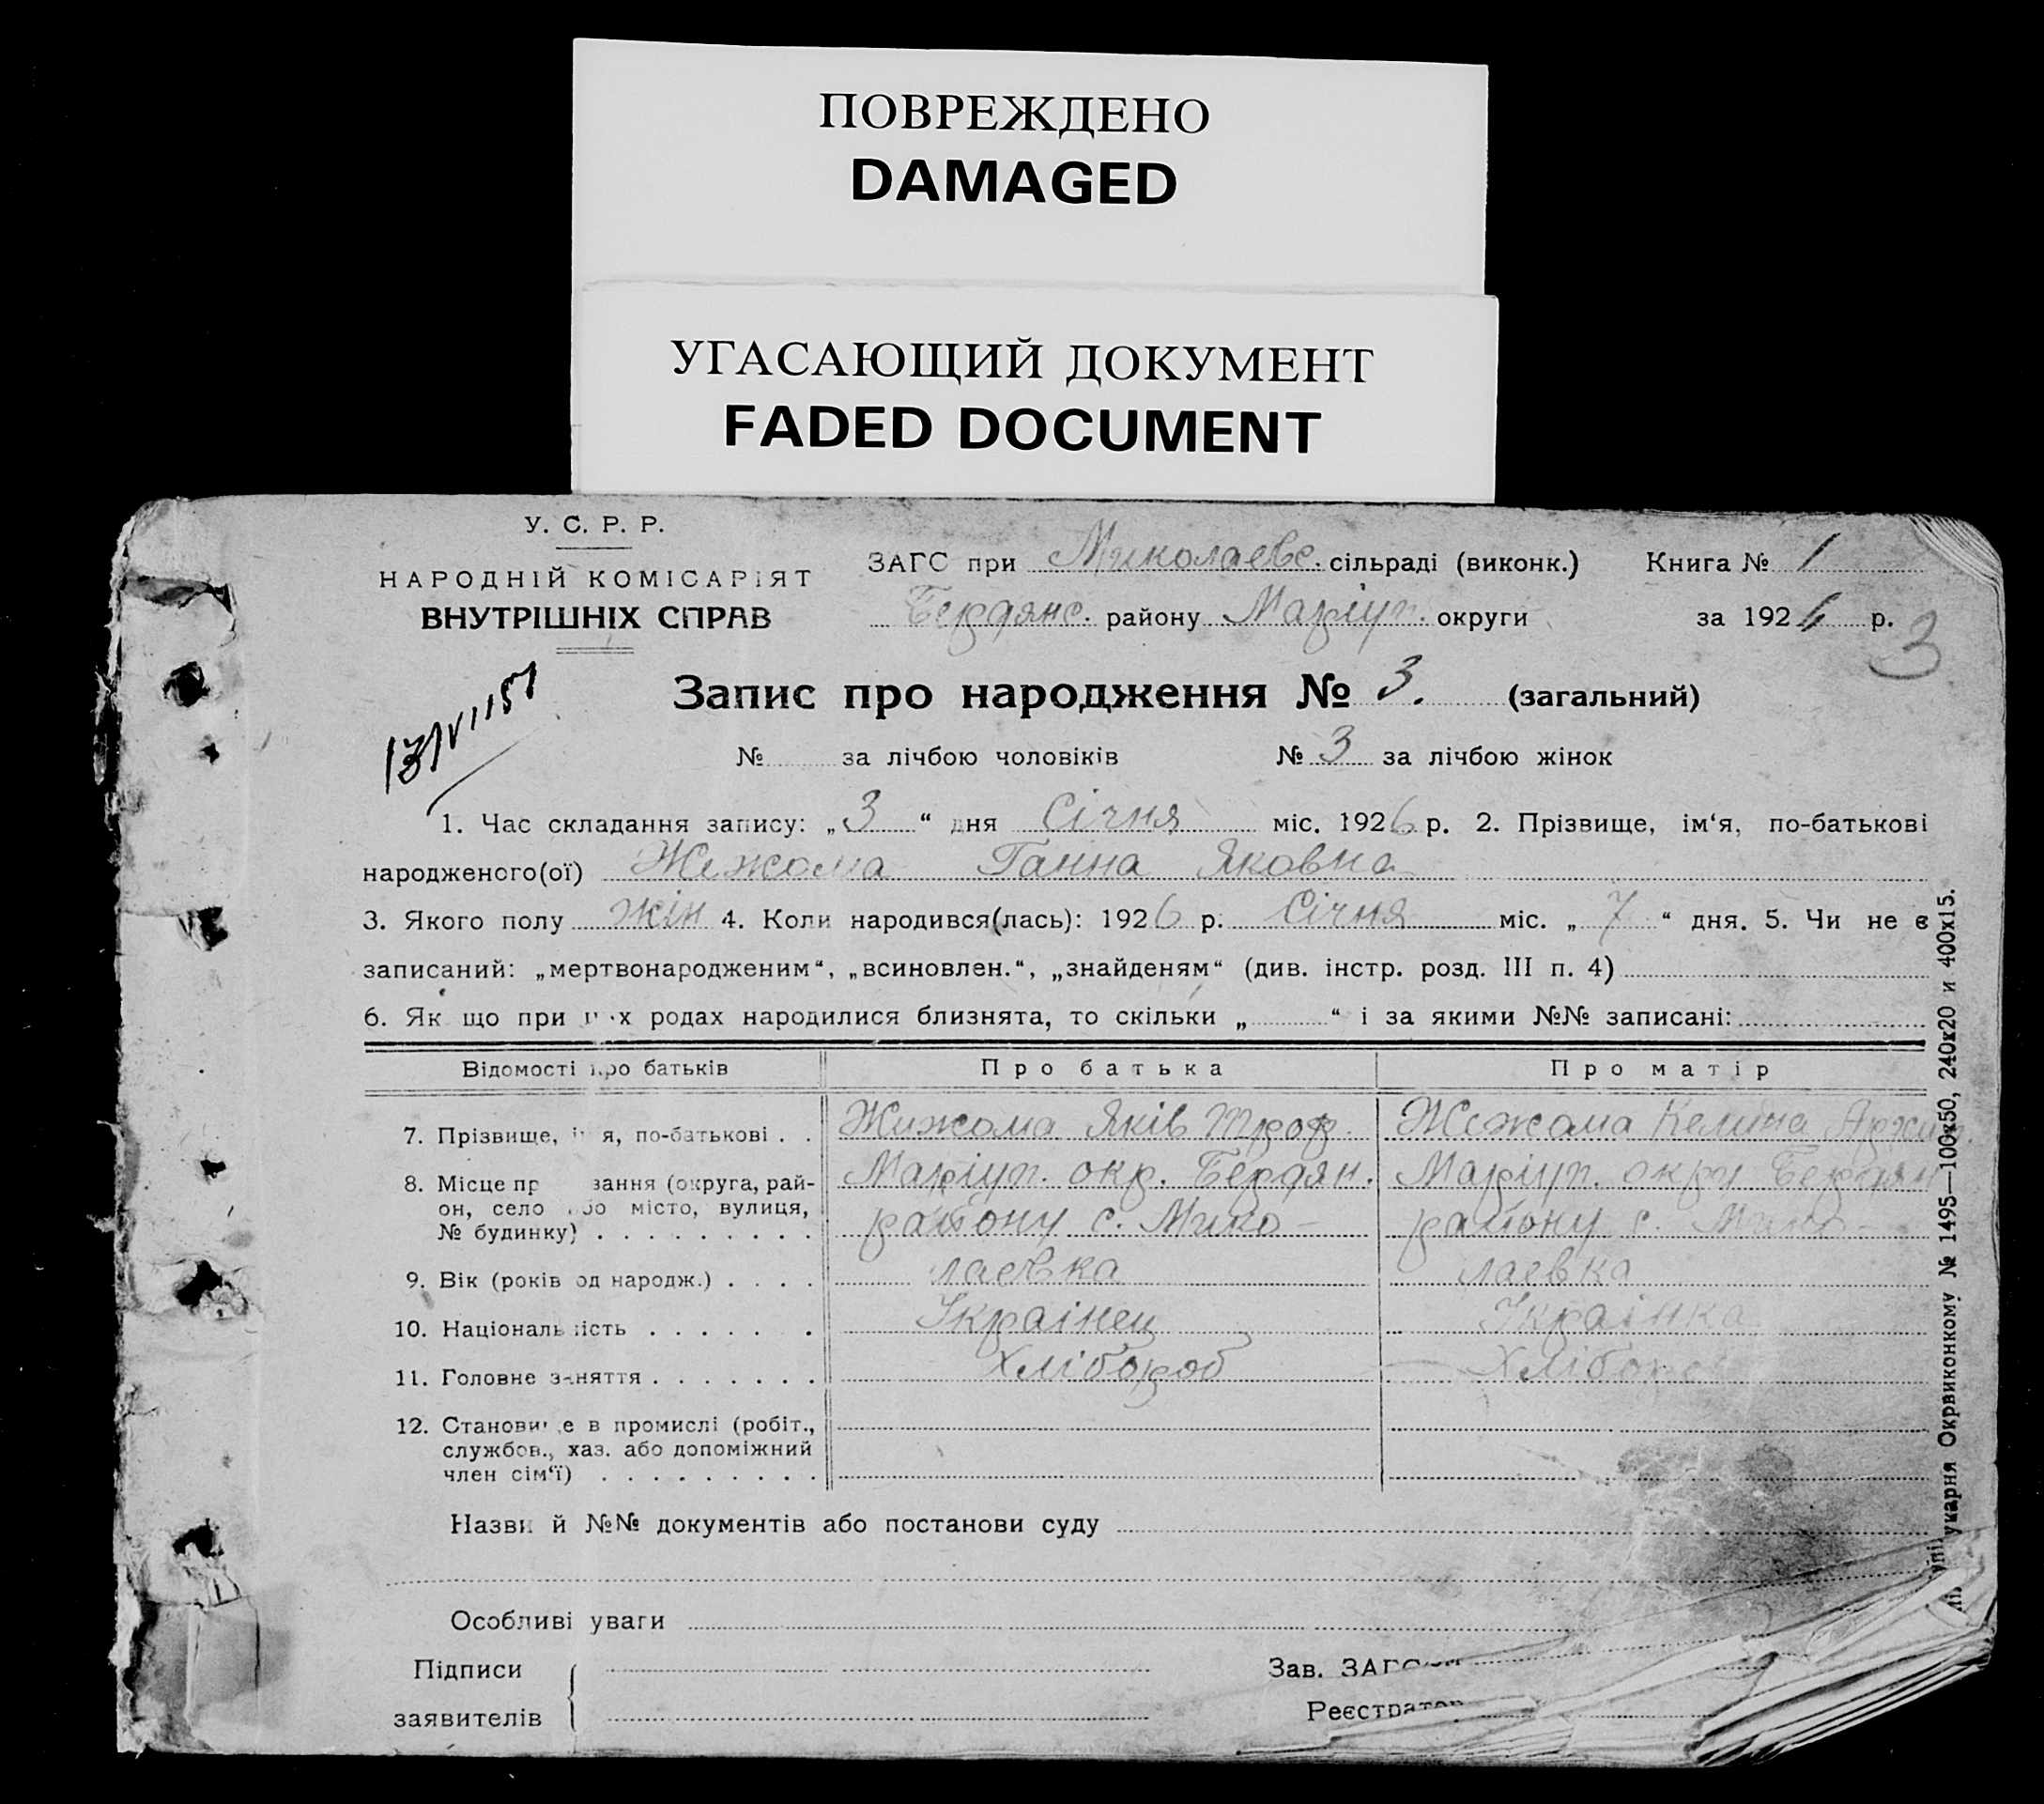 ПОВРЕЖДЕНО
DAMAGED
УГАСАЮЩИЙ ДОКУМЕНТ
FADED DOCUMENT
У. С. Р. Р.
НАРОДНІЙ КОМІСАРІЯТ
ВНУТРІШНІХ СПРАВ
ЗАГС при Миколаевс. сільраді (виконк.) Книга № 1
Бердянс. району Маріуп. округи за 1926 р.
3
Запис про народження № 3. (загальний)
№ за лічбою чоловіків № 3 за лічбою жінок
1. Час складання запису: „3“ дня Січня міс. 1926 р. 2. Прізвище, ім‘я, по-батькові
народженого(ої) Жежома Ганна Яковна
3. Якого полу жін 4. Коли народився(лась): 1926 р. Січня міс. „7“ дня. 5. Чи не є
записаний: „мертвонародженим“, „всиновлен.“, „знайденям“ (див. інстр. розд. III п. 4)
6. Як що при х родах народилися близнята, то скільки „ “ і за якими №№ записані:
Відомості про батьків Про батька Про матір
7. Прізвище, я, по-батькові . . Жижома Яків Троф. Жежома Келина
8. Місце пр зання (округа, рай-
он, село або місто, вулиця,
№ будинку) . . . . . . . . .
Маріуп. окр. Бердян. Маріуп. окру Бердян
району с. Мико- району с. Мико-
9. Вік (років од народж.) . . . . лаевка лаевка
10. Національність . . . . . . Украінец Украінка
11. Головне заняття . . . . . . . Хлібороб Хлібороб
12. Становище в промислі (робіт.,
службов., хаз. або допоміжний
член сім‘ї) . . . . . . . . .
Назви й №№ документів або постанови суду
Особливі уваги
Підписи
заявителів
Зав. ЗАГС
Реєстратор
укарня Окрвиконкому № 1495—100x50, 240x20 и 400x15.